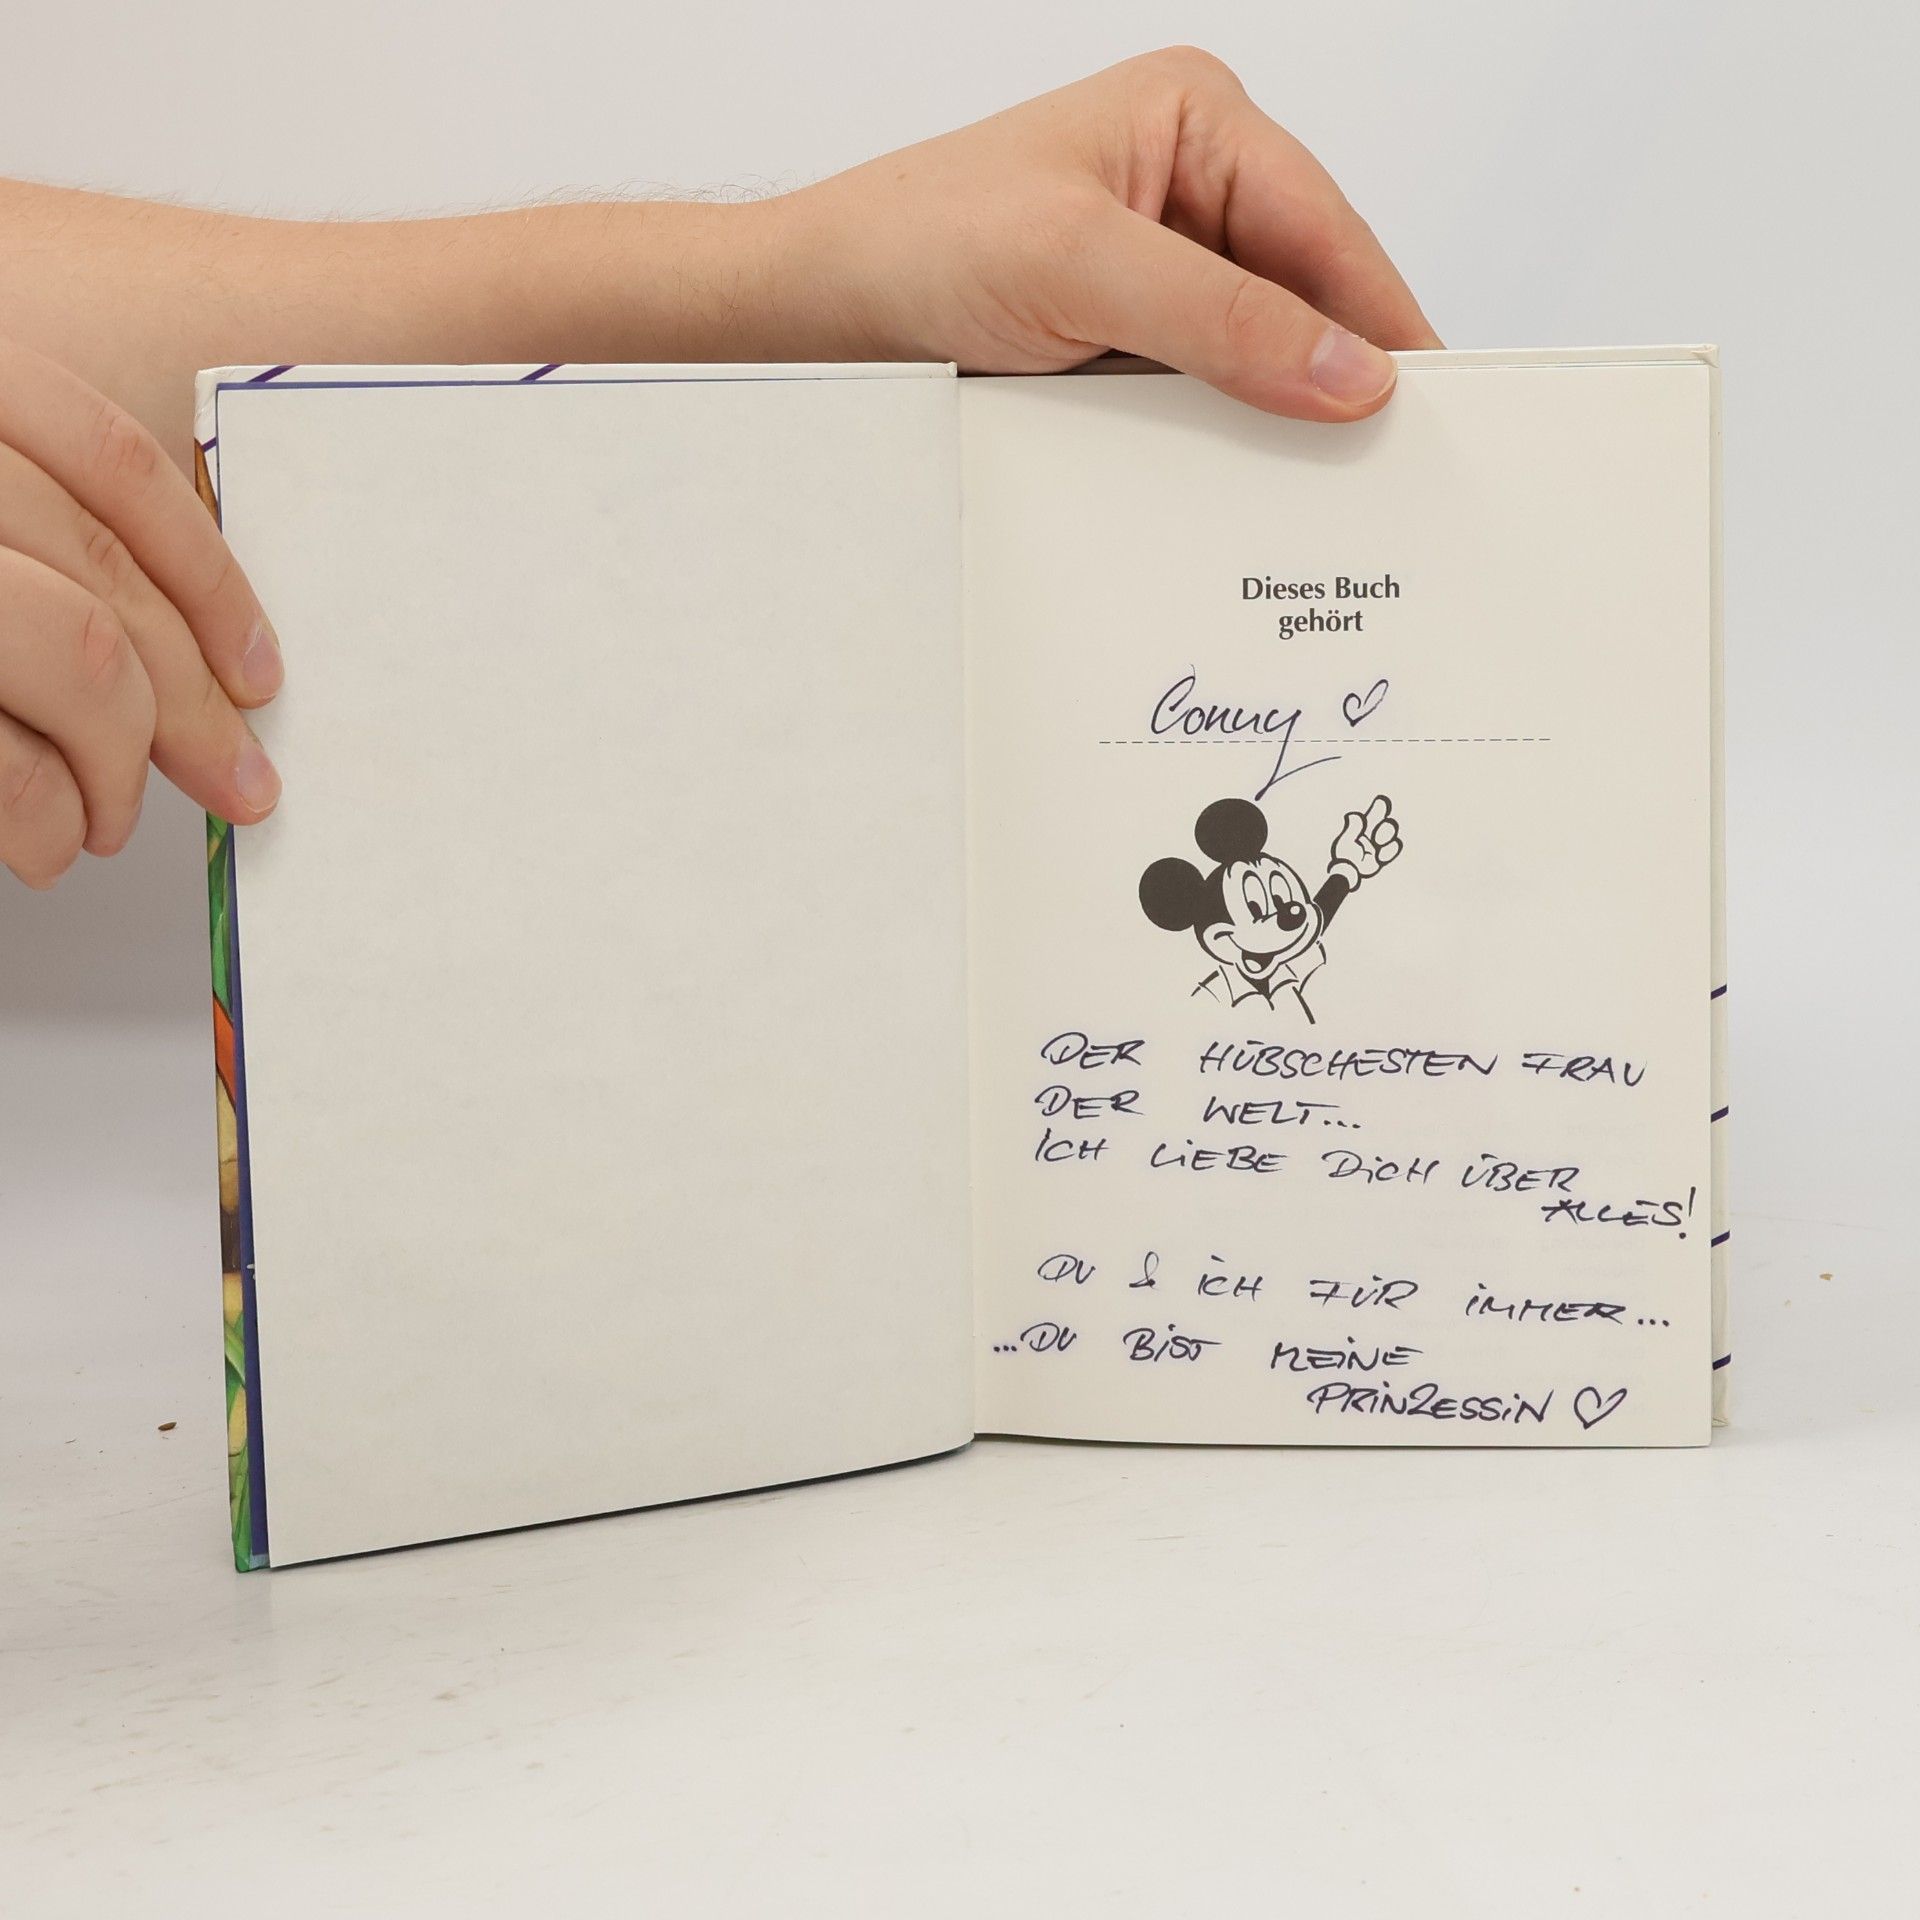 Dieses Buch
gehört
Conny ♡
DER HÜBSCHESTEN FRAU
DER WELT...
ICH LIEBE DICH ÜBER
ALLES!
DU & ICH FÜR IMMER...
...DU BIST MEINE
PRINZESSIN ♡